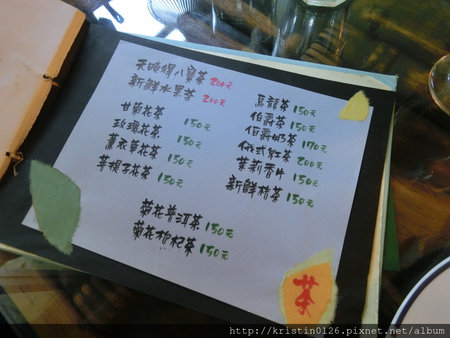 天曉得八寶茶 200元
新鮮水果茶 200元
甘菊花茶 150元
玫瑰花茶 150元
薰衣草花茶 150元
苹梗子花茶 150元
烏龍茶 150元
伯爵茶 150元
伯爵奶茶 170元
俄式紅茶 200元
茉莉香片 150元
新鮮桔茶 150元
菊花普洱茶 150元
菊花枸杞茶 150元
茶
http://kristin0126.pixnet.net/album